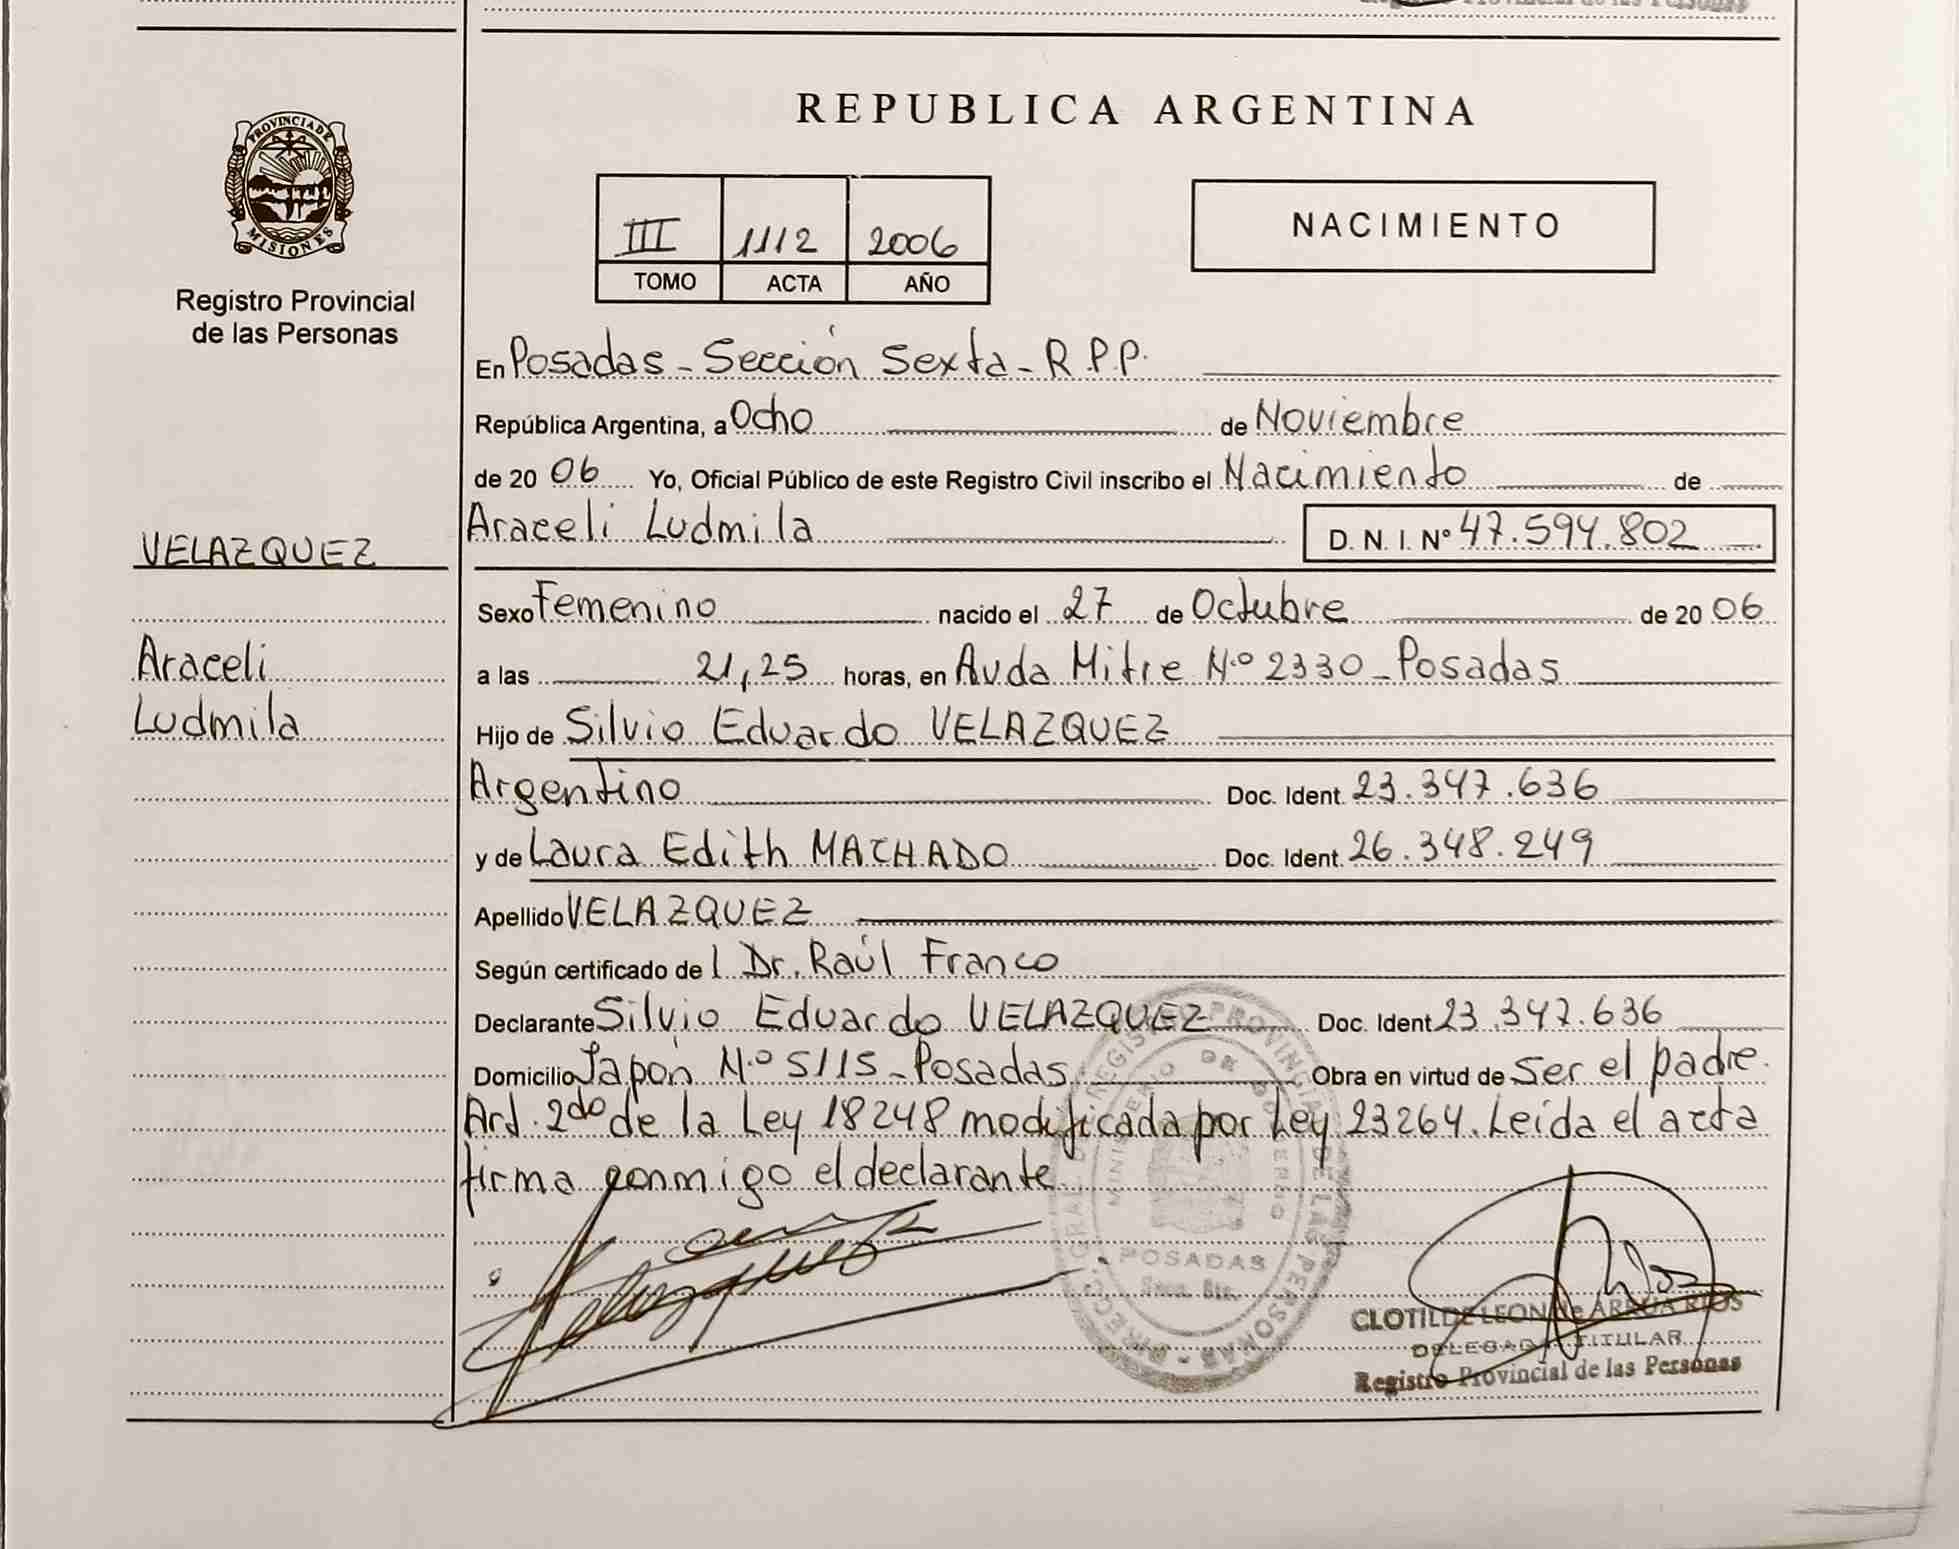 PROVINCIA DE
MISIONES
Registro Provincial
de las Personas
VELAZQUEZ
Araceli
Ludmila
REPUBLICA ARGENTINA
III 1112 2006
TOMO ACTA AÑO
NACIMIENTO
En Posadas - Sección Sexta - R.P.P.
República Argentina, a Ocho de Noviembre
de 20 06 Yo, Oficial Público de este Registro Civil inscribo el Nacimiento de
Araceli Ludmila D. N. I. Nº 47.594.802
Sexo Femenino nacido el 27 de Octubre de 20 06
a las 21,25 horas, en Avda Mitre N.º 2330 - Posadas
Hijo de Silvio Eduardo VELAZQUEZ
Argentino Doc. Ident. 23.347.636
y de Laura Edith MACHADO Doc. Ident. 26.348.249
Apellido VELAZQUEZ
Según certificado de l Dr. Raúl Franco
Declarante Silvio Eduardo VELAZQUEZ Doc. Ident 23.347.636
Domicilio Japón N.º 5115 - Posadas Obra en virtud de Ser el padre.
Art. 2do de la Ley 18248 modificada por Ley 23264. Leída el acta
firma conmigo el declarante
DIRECC. GRAL. DEL REGISTRO PROVINCIAL DE LAS PERSONAS
MINISTERIO DE GOBIERNO
POSADAS
Secc. 6ta.
Velazquez
CLOTILDE LEON de ARRUA RIOS
DELEGADA TITULAR
Registro Provincial de las Personas